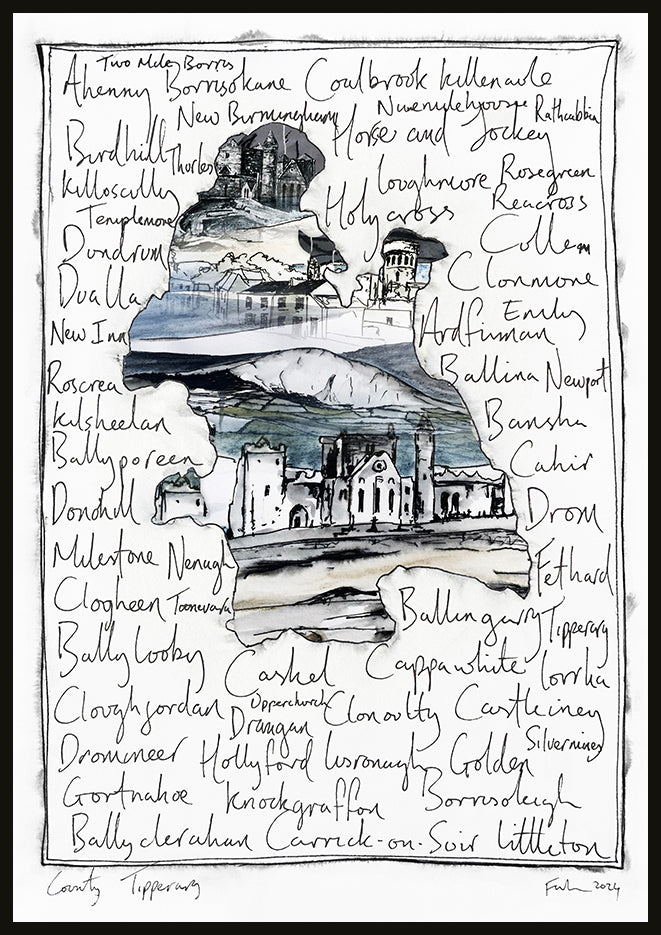 Two Mile Borris
Ahenny Borrisokane Coalbrook Killenaule
New Birmingham
Horse and Jockey Rathcabbin
Birdhill Thurles
Loughmore Rosegreen
Killoscully Holycross Reacross
Templemore
Dundrum
Clonmore
Dualla
Emly
New Inn Ardfinnan
Roscrea Ballina Newport
Kilsheelan Bansha
Ballyporeen Cahir
Donohill Drom
Milestone Nenagh Fethard
Clogheen Toomevara Ballingarry Tipperary
Ballylooby Cashel Cappawhite Lorrha
Upperchurch
Cloughjordan Drangan Clonoulty Castleiney
Silvermines
Dromineer Hollyford Lisronagh Golden
Gortnahoe Knockgraffon Borrisoleigh
Ballyclerahan Carrick-on-Suir Littleton
County Tipperary 2024